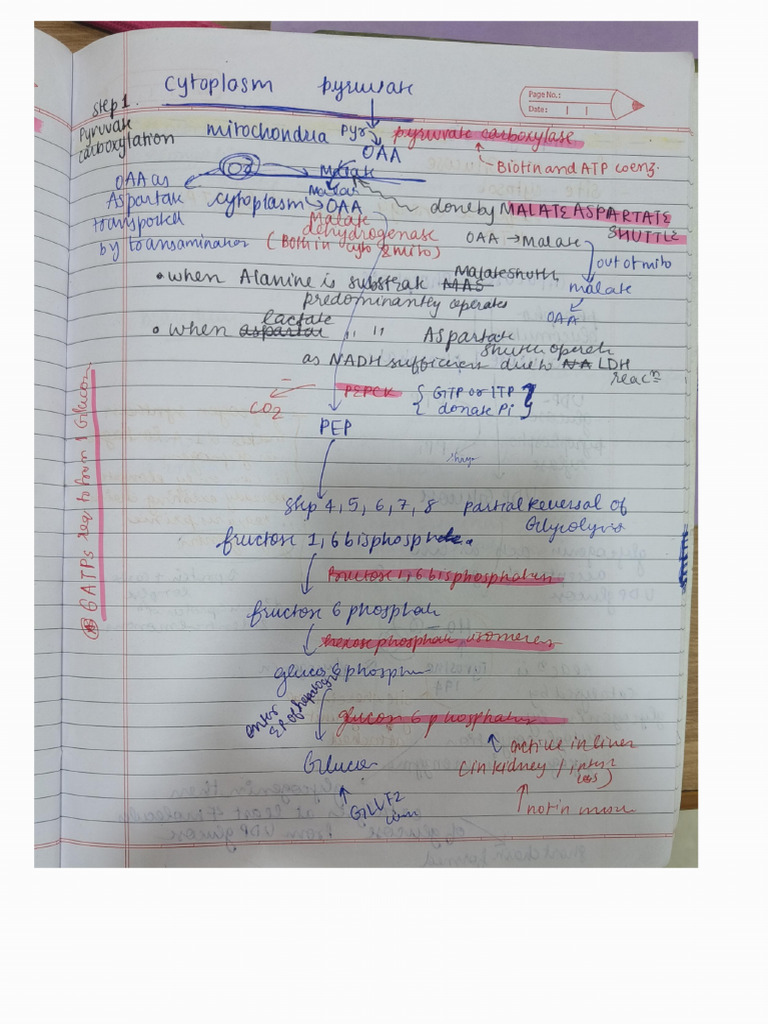 cytoplasm pyruvate
Page No.:
Date:
step 1.
Pyruvate
carboxylation
mitochondria pyr pyruvate carboxylase
OAA
Biotin and ATP coenz.
Malate
OAA as
Aspartate
transported
by transamination
Malate
cytoplasm → OAA
done by MALATE ASPARTATE
SHUTTLE
Malate
dehydrogenase
(Both in cyto & mito)
OAA → Malate
out of mito
malate
OAA
• when Alanine is substrate MAS Malate shuttle
predominantly operates
• when aspartate lactate ,, ,, Aspartate
shuttle operate
as NADH sufficient due to NA LDH
reacⁿ
CO2
PEPCK { GTP or ITP }
{ donate Pi }
PEP
step 4, 5, 6, 7, 8 partial reversal of
Glycolysis
fructose 1,6 bisphosphate.
fructose 1,6 bisphosphatase
fructose 6 phosphate
hexose phosphate isomerase
glucose 6 phosphate
enter
ER of hepatocyte
glucose 6 phosphatase
active in liver
(in kidney /
Glucose
GLUT2
not in muscle
6 ATPs req to form 1 Glucose